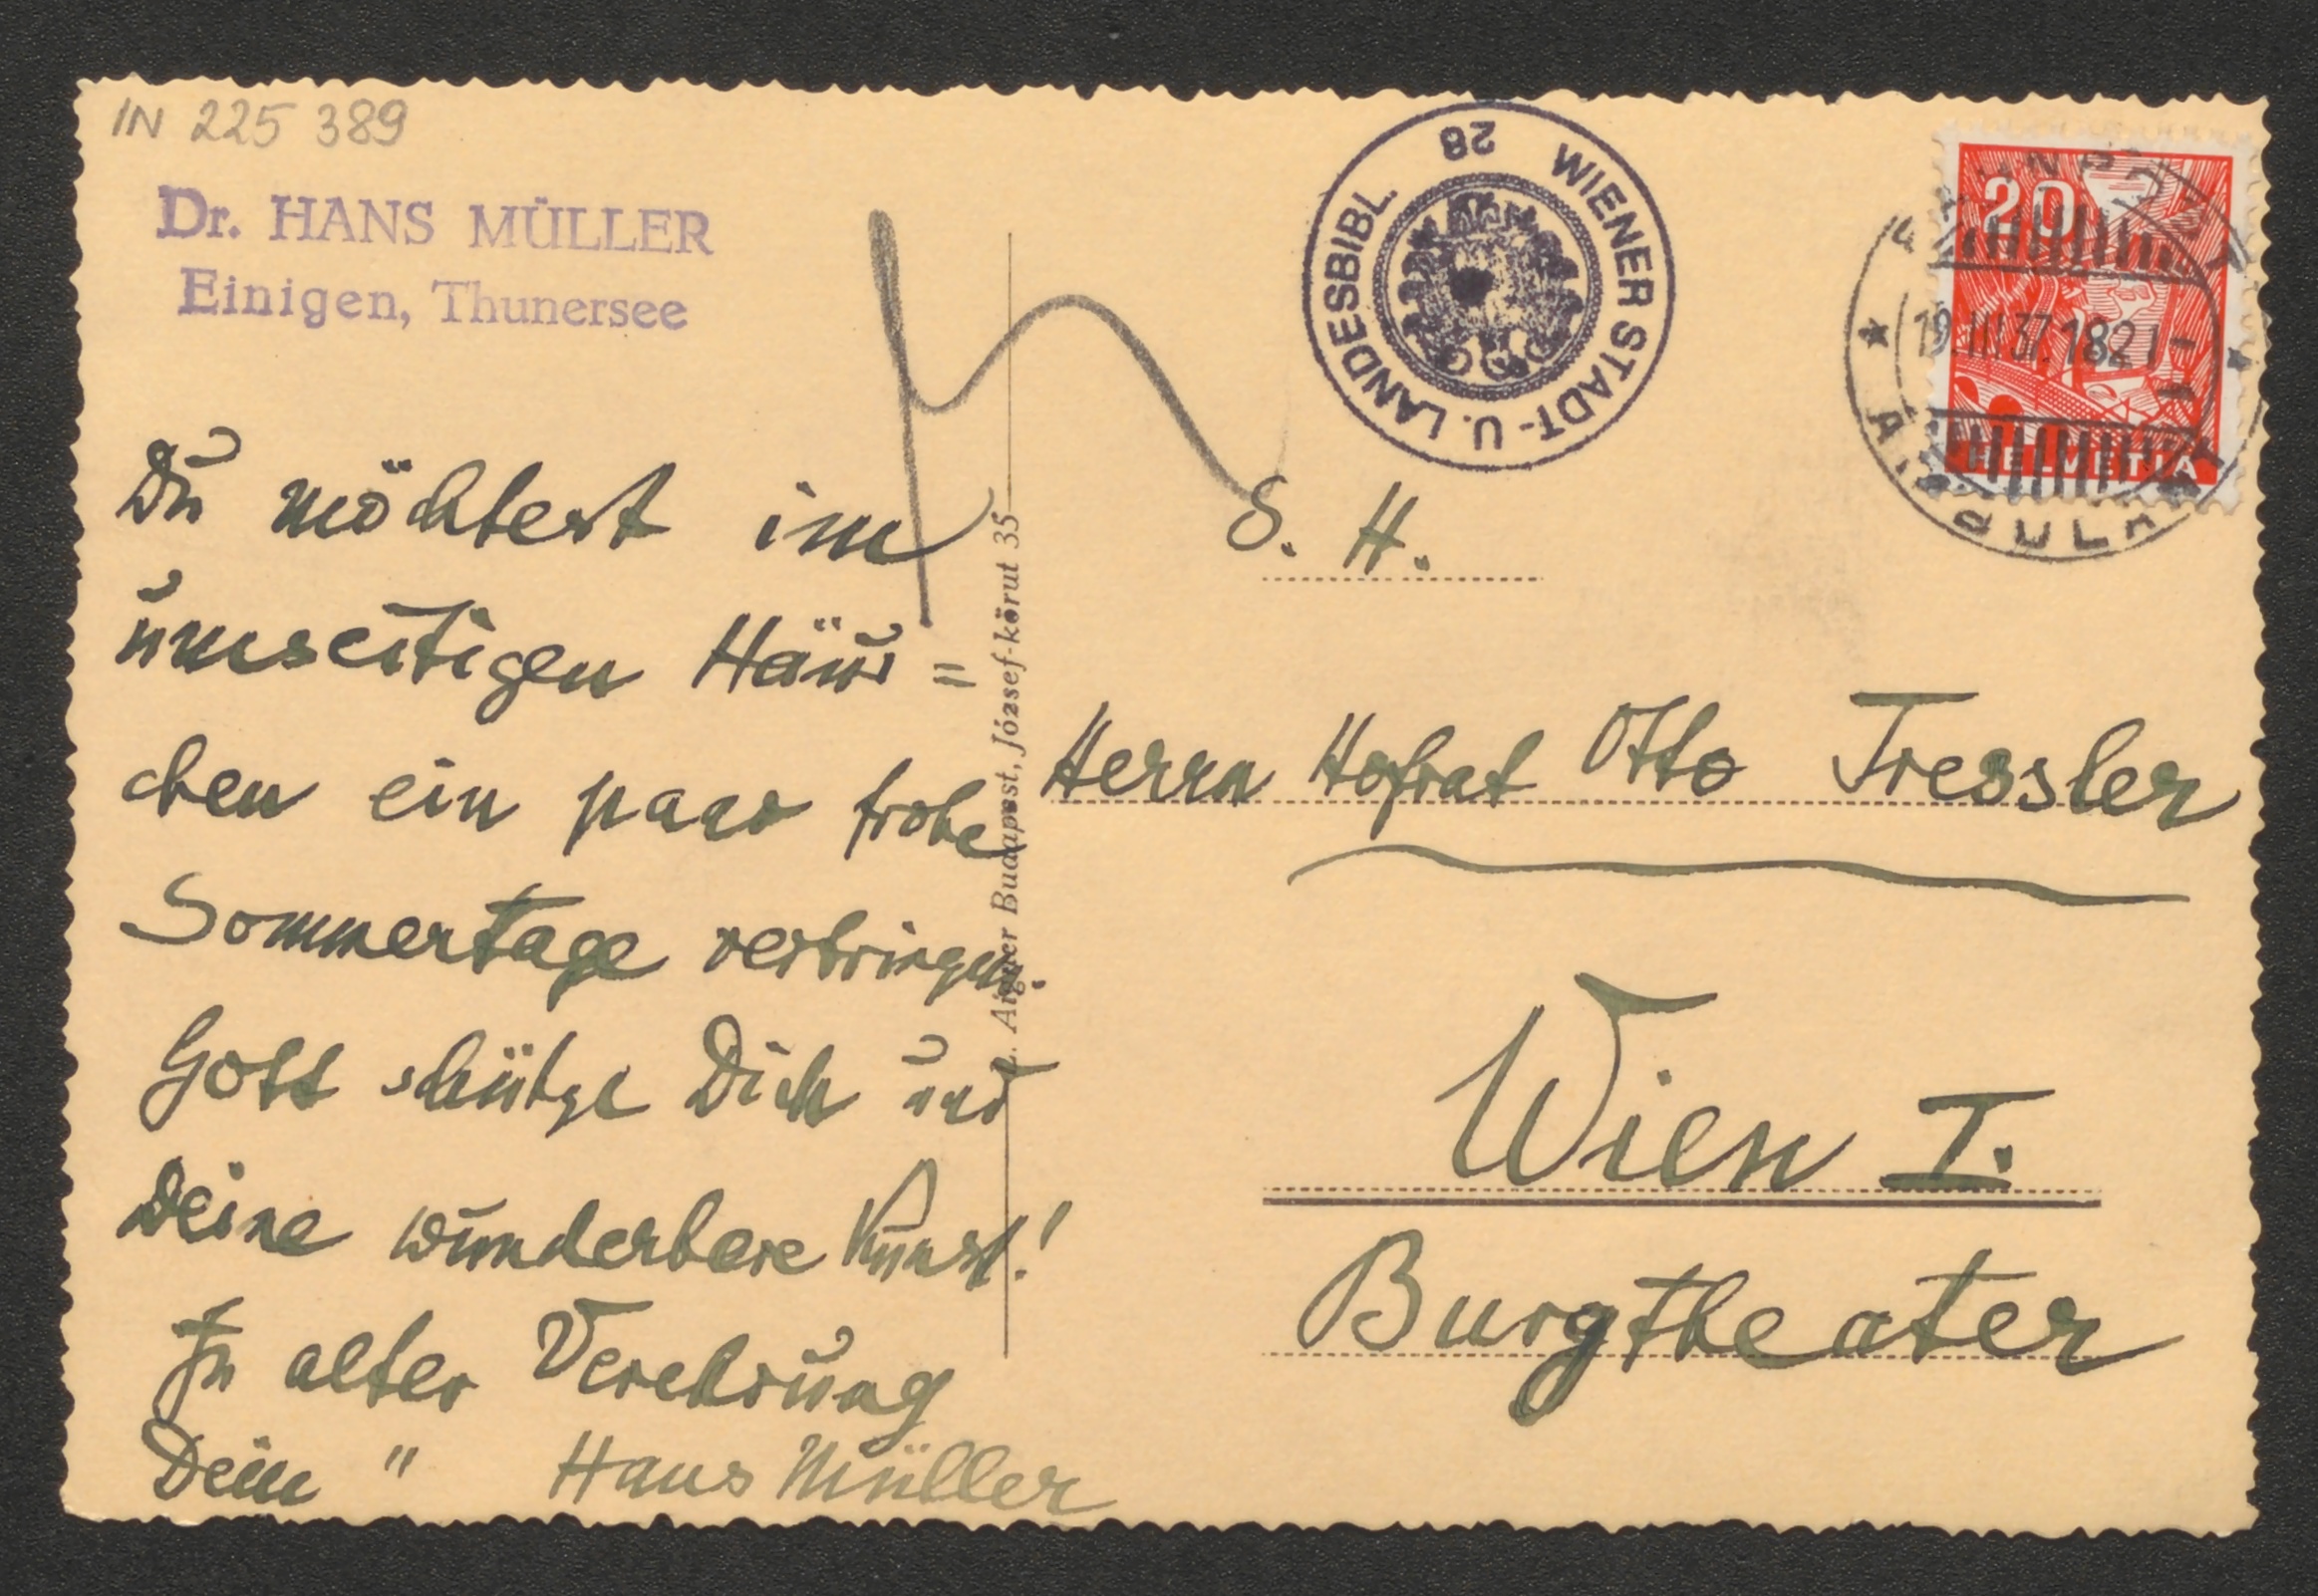 IN 225 389
Dr. HANS MÜLLER
Einigen, Thunersee
Du möchtest im
umseitigen Häus=
chen ein paar frohe
Sommertage verbringen.
Gott schütze Dich und
Deine wunderbare Kunst!
In alter Verehrung
Dein " Hans Müller
Aigner Budapest, József-körut 35
WIENER STADT- U. LANDESBIBL.
28
20
HELVETIA
19.III.37.1821-
AMBULANT
S. H.
Herrn Hofrat Otto Tressler
Wien I.
Burgtheater